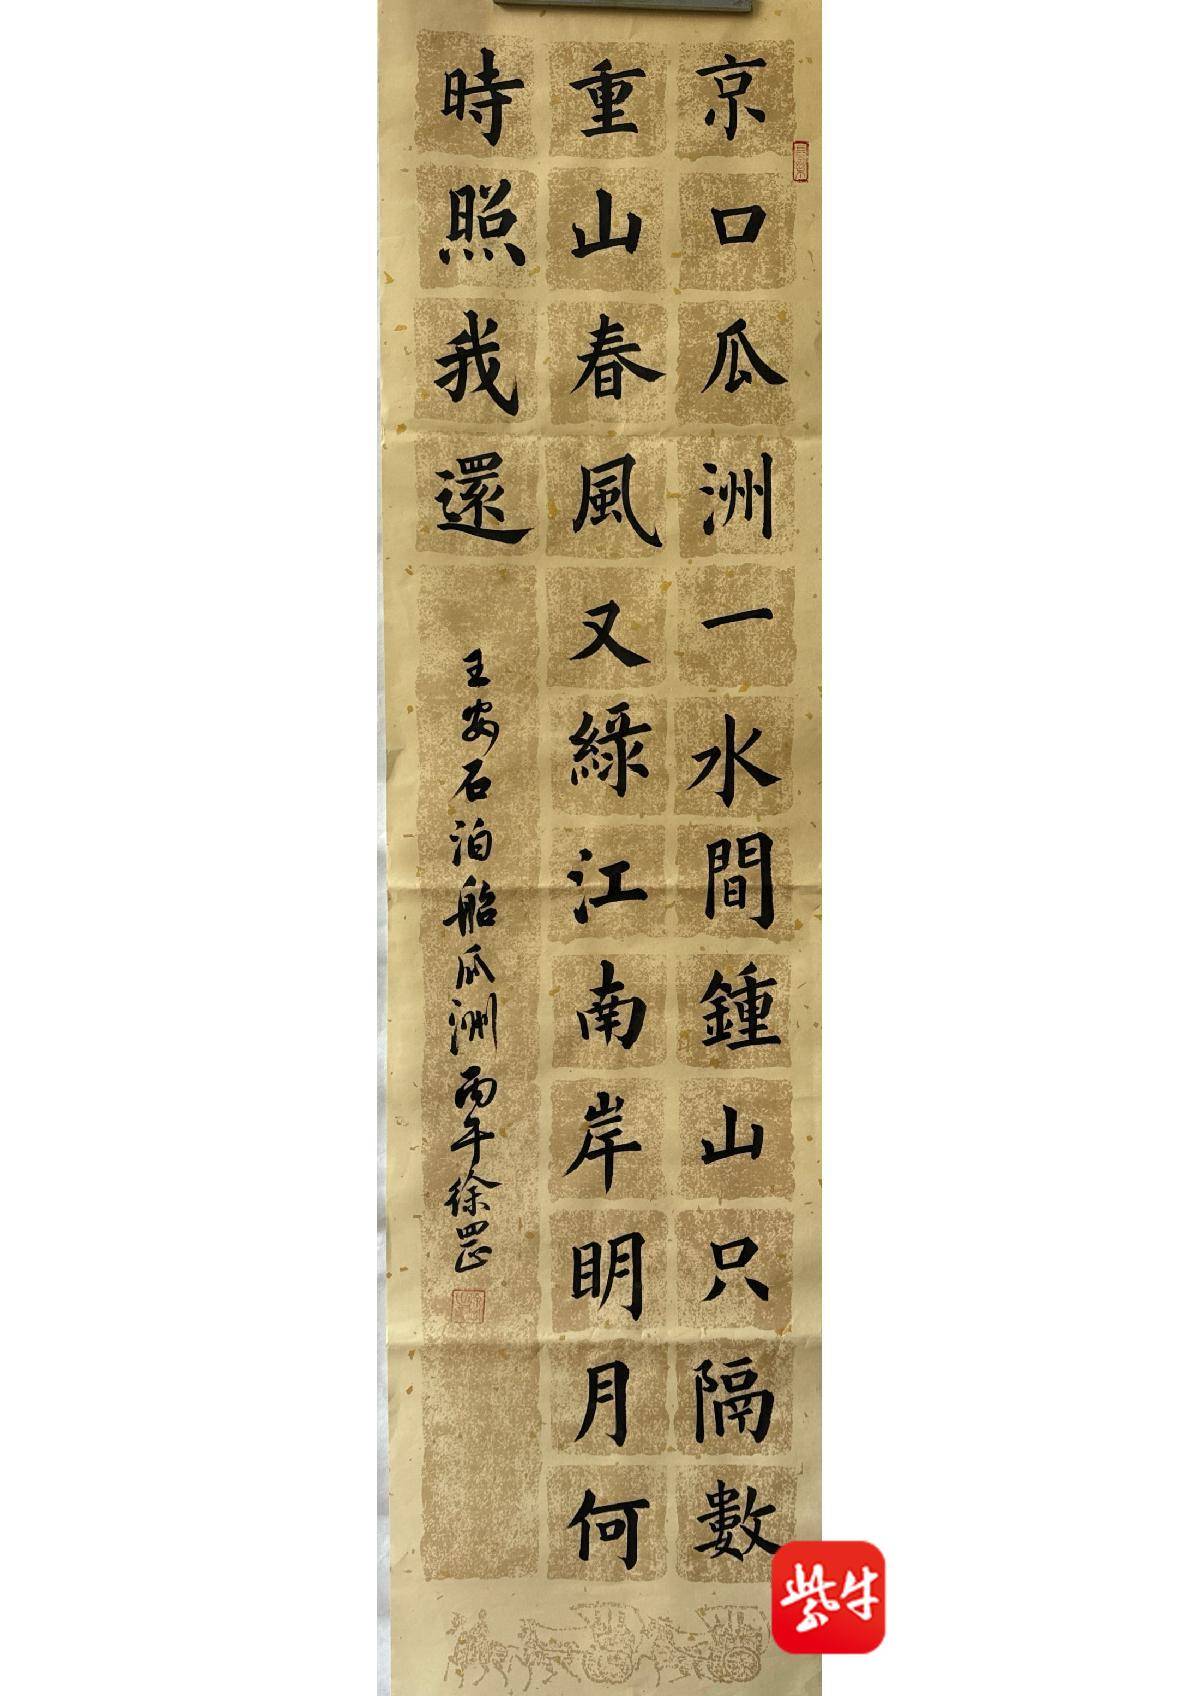 京口瓜洲一水間鍾山只隔數
重山春風又綠江南岸明月何
時照我還
王安石泊船瓜洲丙午徐罡
紫牛